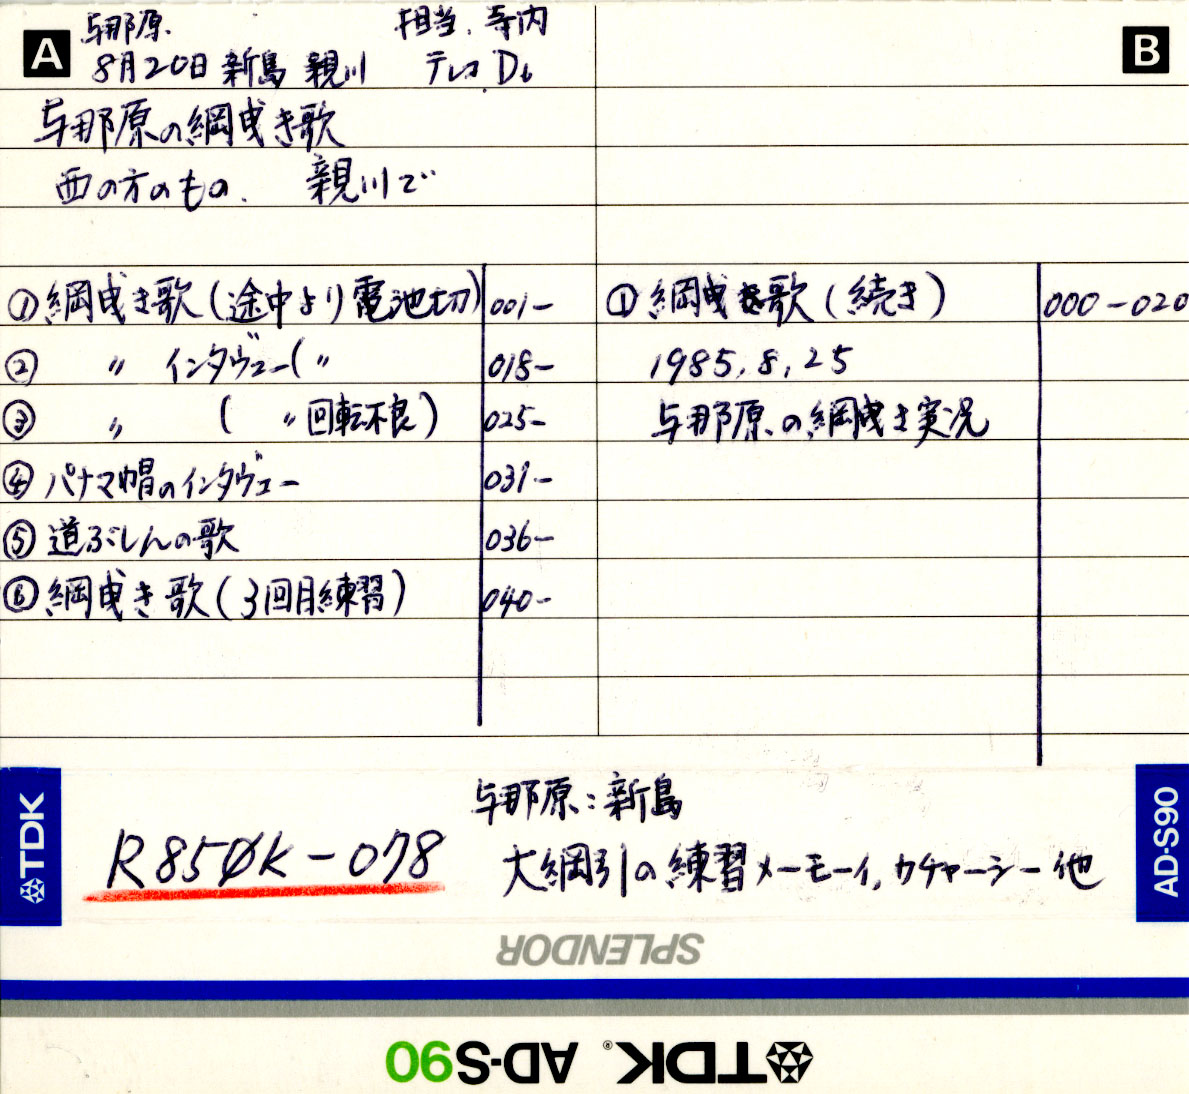 A
与那原. 担当. 寺内
8月20日 新島 親川 テレコ D6
与那原の綱曳き歌
西の方のもの. 親川で
①綱曳き歌(途中より電池切) 001-
② 〃 インタヴュー( 〃 018-
③ 〃 ( 〃 回転不良) 025-
④パナマ帽のインタヴュー 031-
⑤道ぶしんの歌 036-
⑥綱曳き歌(3回目練習) 040-
B
①綱曳き歌(続き) 000-020
1985.8.25
与那原.の綱曳き実況
TDK
R850K-078
与那原:新島
大綱引の練習メーモーイ,カチャーシー他
AD-S90
SPLENDOR
TDK® AD-S90